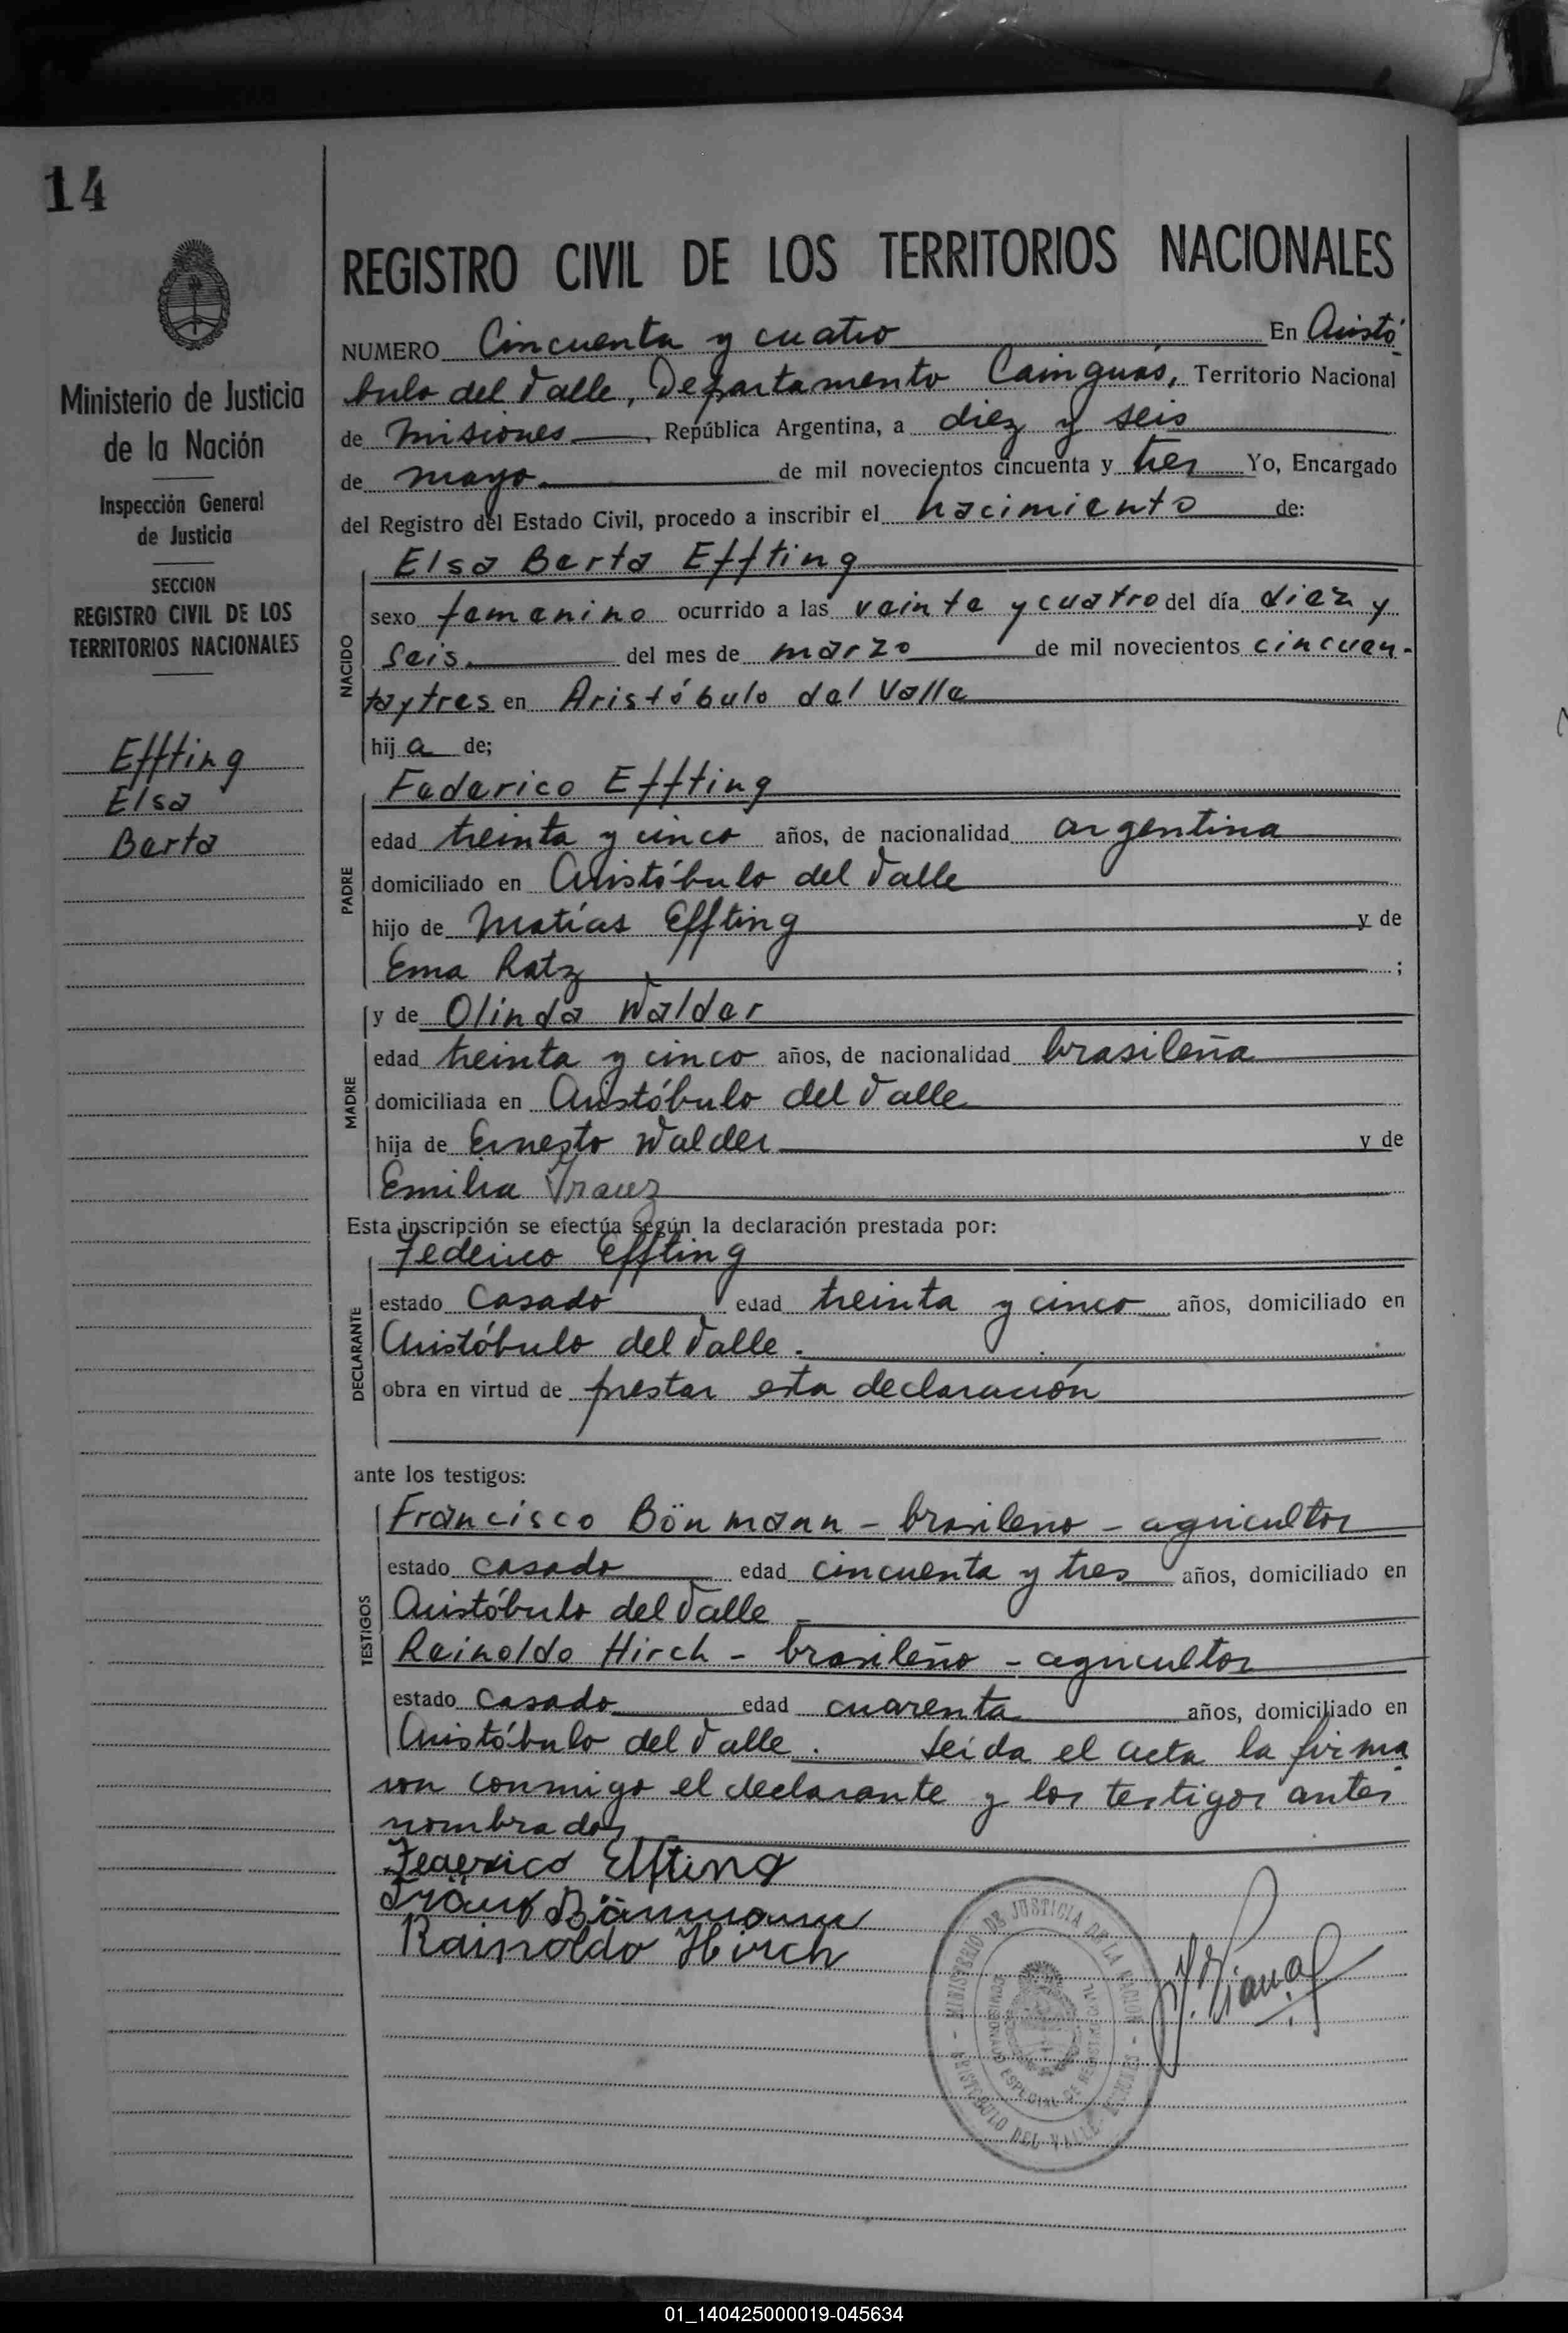 14
REGISTRO CIVIL DE LOS TERRITORIOS NACIONALES
NUMERO Cincuenta y cuatro En Aristó
bulo del Valle, Departamento Cainguás, Territorio Nacional
de Misiones República Argentina, a diez y seis
de mayo. de mil novecientos cincuenta y tres Yo, Encargado
del Registro del Estado Civil, procedo a inscribir el nacimiento de:
Ministerio de Justicia
de la Nación
Inspección General
de Justicia
SECCION
REGISTRO CIVIL DE LOS
TERRITORIOS NACIONALES
Effting
Elsa
Berta
NACIDO
Elsa Berta Effting
sexo femenino ocurrido a las veinte y cuatro del día diez y
seis. del mes de marzo de mil novecientos cincuen-
ta y tres en Aristóbulo del Valle
hij a de;
PADRE
Federico Effting
edad treinta y cinco años, de nacionalidad argentina
domiciliado en Aristóbulo del Valle
hijo de Matías Effting y de
Ema Ratz ;
MADRE
y de Olinda Walder
edad treinta y cinco años, de nacionalidad brasileña
domiciliada en Aristóbulo del Valle
hija de Ernesto Walder y de
Emilia
Esta inscripción se efectúa según la declaración prestada por:
DECLARANTE
Federico Effting
estado Casado edad treinta y cinco años, domiciliado en
Aristóbulo del Valle.
obra en virtud de prestar esta declaración
ante los testigos:
TESTIGOS
Francisco Bönmann - brasileno - agricultor
estado casado edad cincuenta y tres años, domiciliado en
Aristóbulo del Valle
Reinoldo Hirch - brasileño - agricultor
estado Casado edad cuarenta años, domiciliado en
Aristóbulo del Valle. Leída el acta la firma
ron conmigo el declarante y los testigos antes
nombrados
Federico Effting
Reinoldo Hirch
MINISTERIO DE JUSTICIA DE LA NACION - ARISTOBULO DEL VALLE - MISIONES
01_140425000019-045634